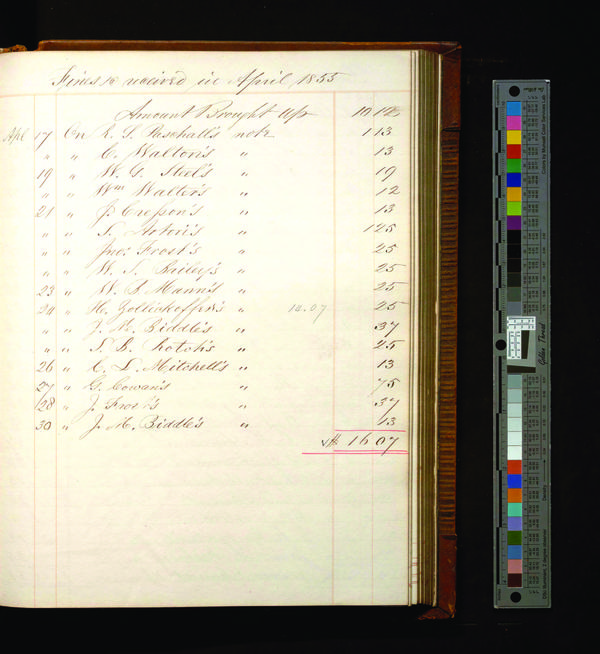 Fines &c received in April 1855
Amount Brought Up 10 12
Apl 17 On L. S. Paschall's note 1 13
" " C. Walton's " 13
19 " W. G. Steel's " 19
" " Wm Walter's " 12
21 " J. Cresson's " 13
" " S. " 1 25
" " Jno: Frost's " 25
" " W. S. Baily's " 25
23 " W. B Mann's " 25
24 " H. Zollickoffer's " 14.07 25
" " J. M. Biddle's " 37
" " S. B. " 25
26 " L. Mitchell's " 13
27 " G. Cowan's " 75
28 " J. Frost's " 37
30 " J. M. Biddle's " 13
$ 16 07